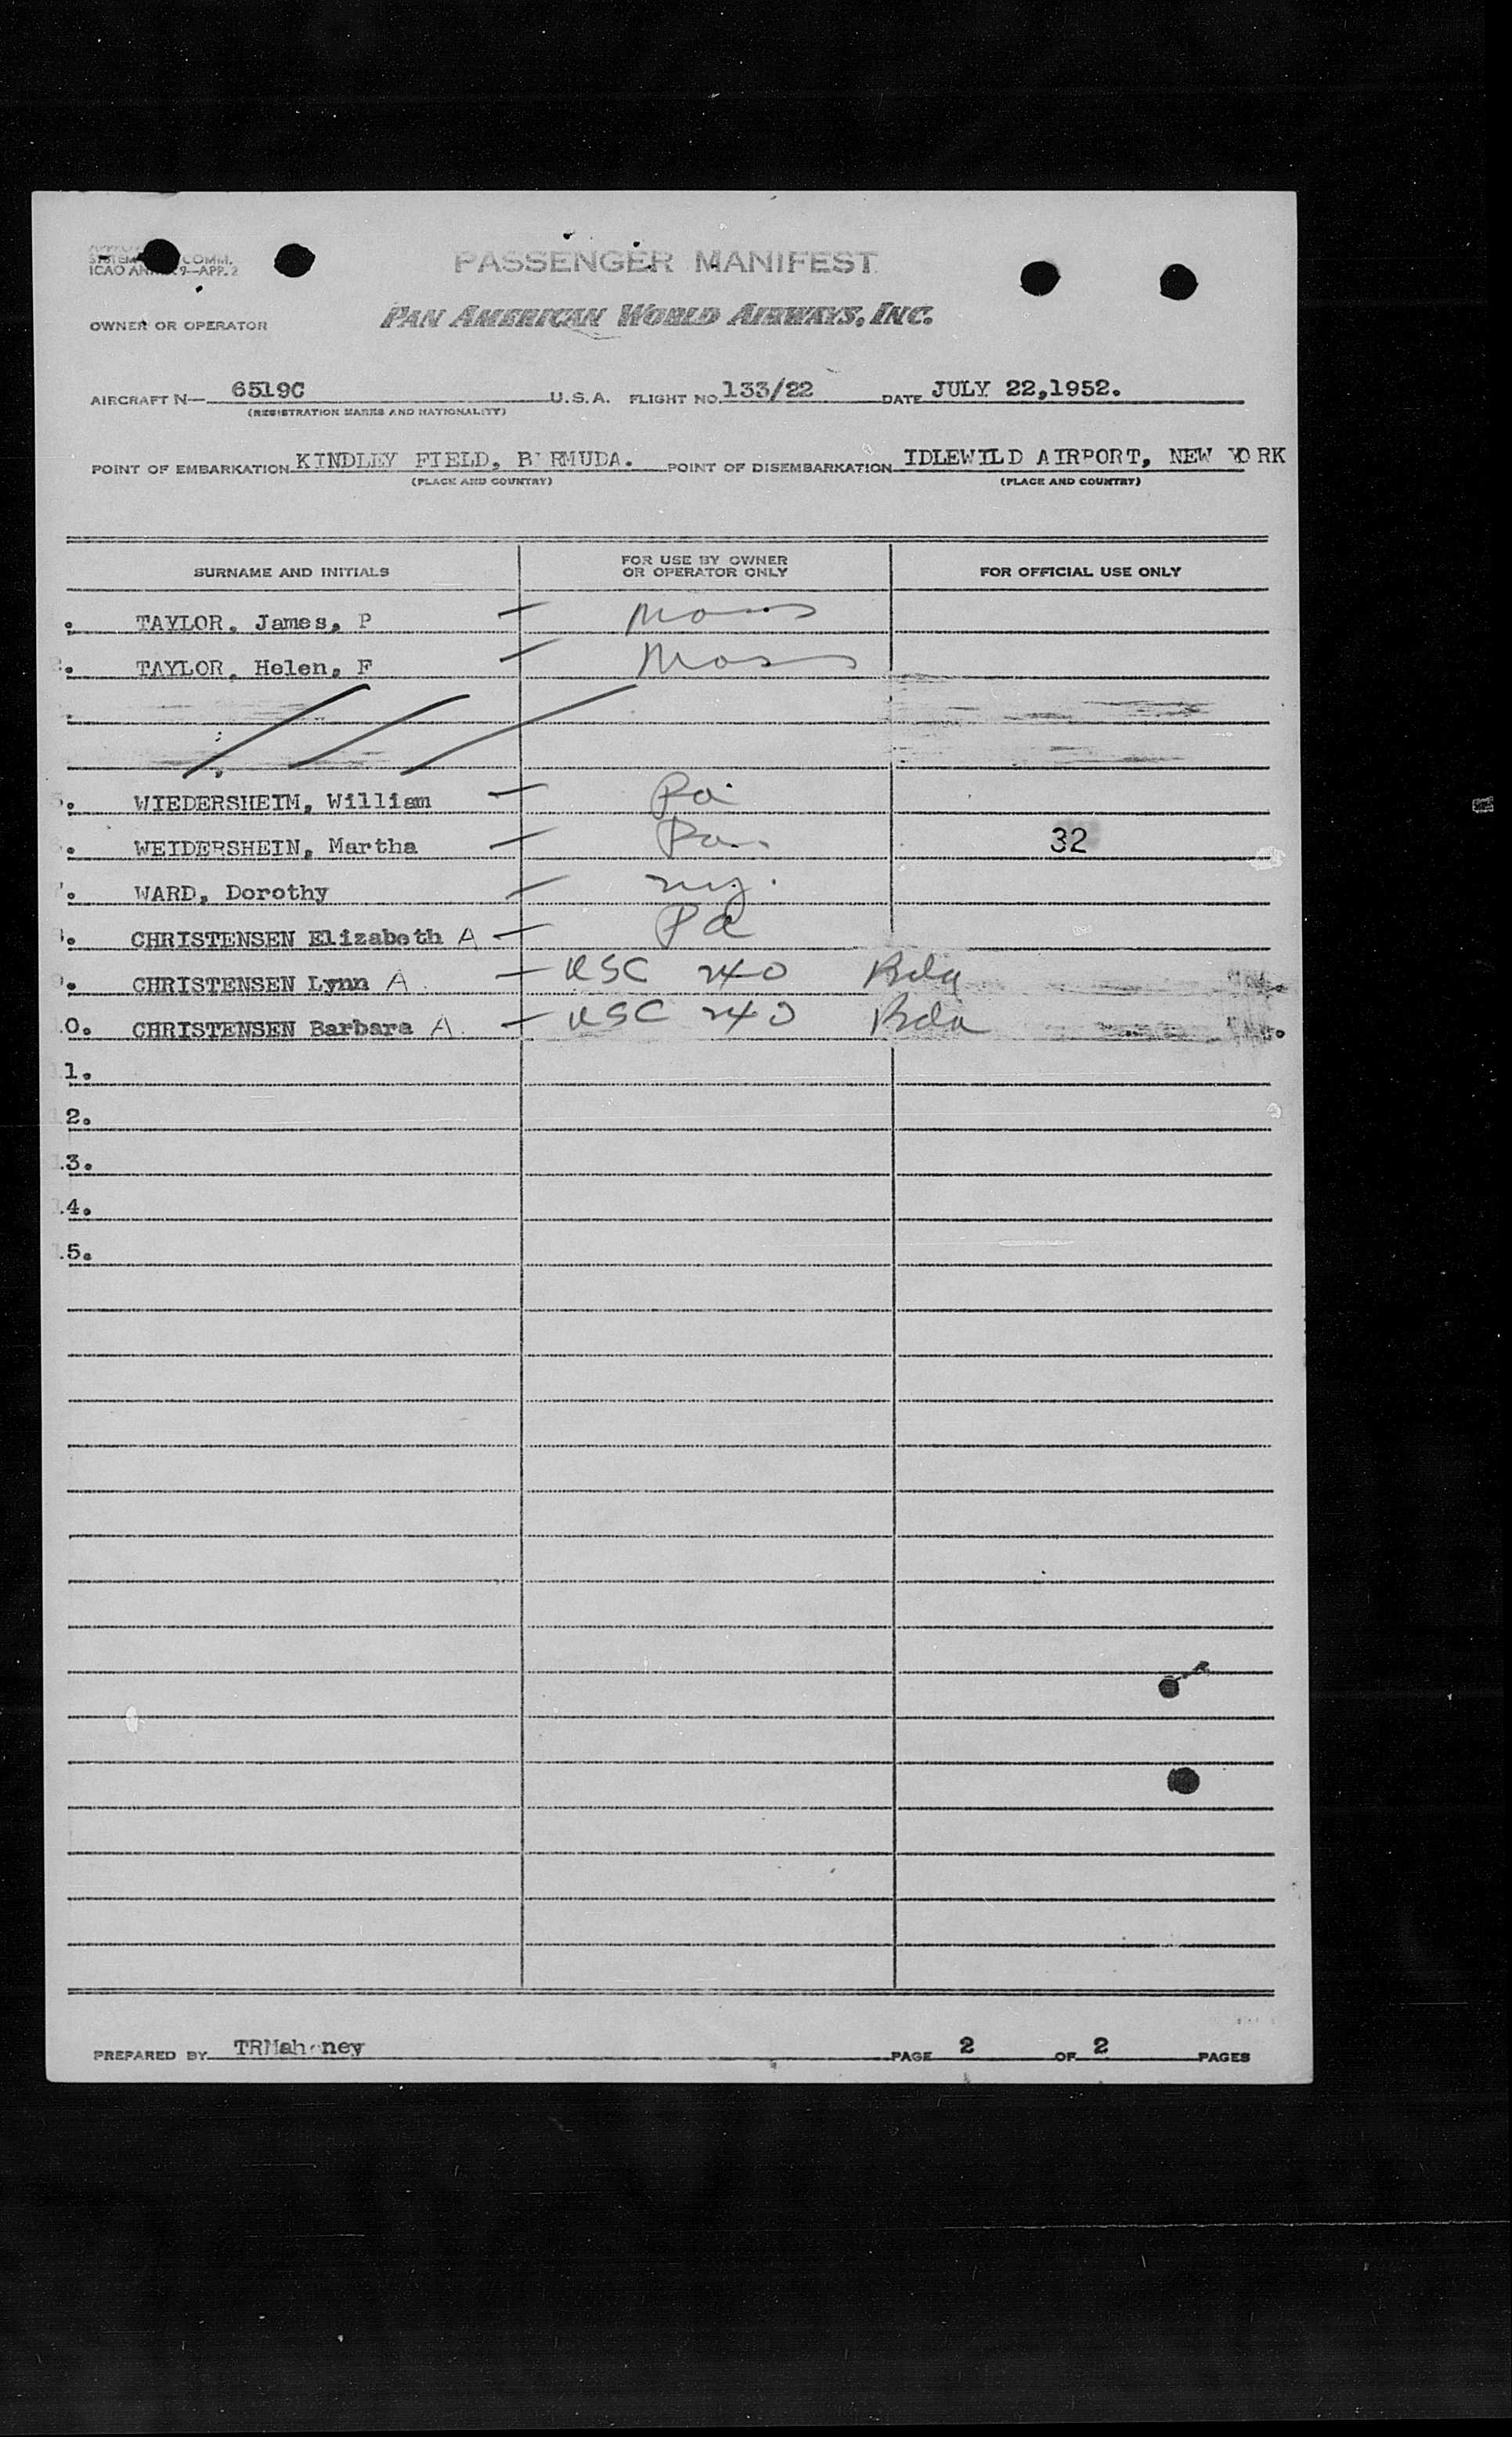 SYSTEM COMM.
ICAO ANNEX 9—APP. 2
PASSENGER MANIFEST
OWNER OR OPERATOR PAN AMERICAN WORLD AIRWAYS, INC.
AIRCRAFT N— 6519C U.S.A. FLIGHT NO. 133/22 DATE JULY 22,1952.
(REGISTRATION MARKS AND NATIONALITY)
POINT OF EMBARKATION KINDLEY FIELD, B RMUDA. POINT OF DISEMBARKATION IDLEWILD AIRPORT, NEW YORK
(PLACE AND COUNTRY) (PLACE AND COUNTRY)
SURNAME AND INITIALS FOR USE BY OWNER OR OPERATOR ONLY FOR OFFICIAL USE ONLY
. TAYLOR, James, P — Mass
. TAYLOR, Helen, F — Mass
. WIEDERSHEIM, William — Pa.
. WEIDERSHEIN, Martha — Pa. 32
. WARD, Dorothy — NY.
. CHRISTENSEN Elizabeth A — Pa
. CHRISTENSEN Lynn A. — USC 240 Bda
0. CHRISTENSEN Barbara A. — USC 240 Bda
1.
2.
3.
4.
5.
PREPARED BY TRMahoney PAGE 2 OF 2 PAGES